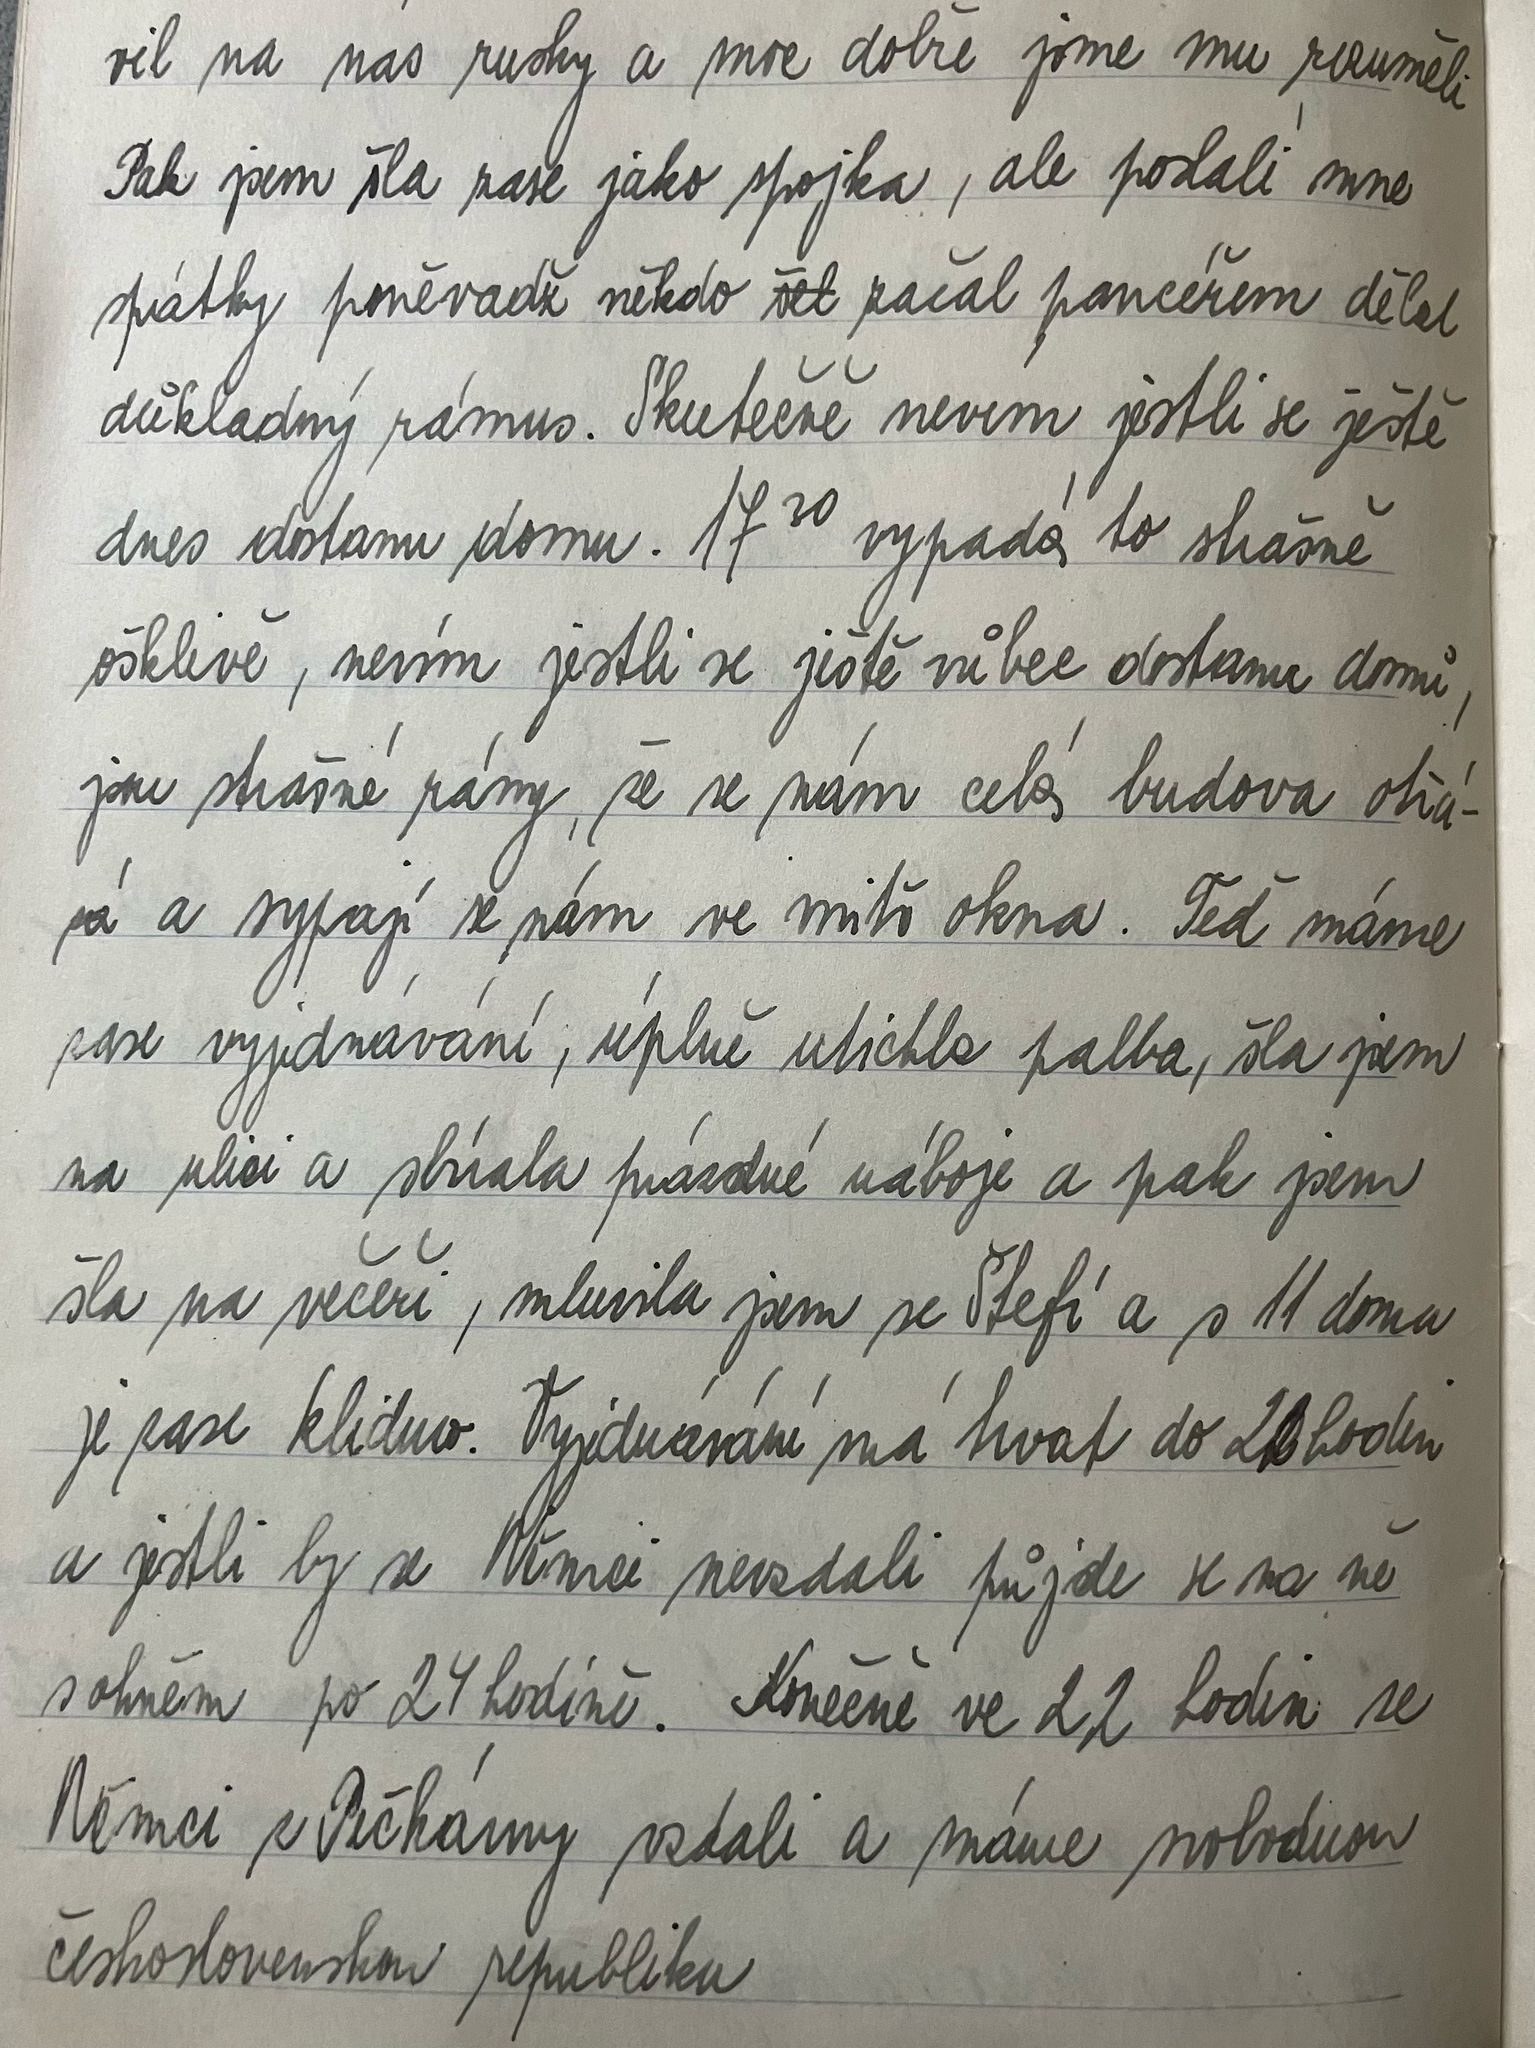 vil na nás rusky a moc dobře jsme mu rozuměli
Pak jsem šla zase jako spojka, ale poslali mne
zpátky poněvadž někdo šel začal pancéřem dělat
důkladný rámus. Skutečně nevím jestli se ještě
dnes dostanu domu. 17 30 vypadá to strašně
ošklivě, nevím jestli se ještě vůbec dostanu domů,
jsou strašné rány, že se nám celá budova otřá-
sá a sypají se nám ve mitř okna. Teď máme
zase vyjednávání, úplně utichla palba, šla jsem
na ulici a sbírala prázdné náboje a pak jsem
šla na večeři, mluvila jsem se Štefí a s 11 doma
je zase klidno. Vyjednávání má trvat do hodin
a jestli by se Němci nevzdali půjde se na ně
s ohněm po 24 hodině. Konečně ve 22 hodin se
Němci z Pečkárny vzdali a máme svobodnou
československou republiku